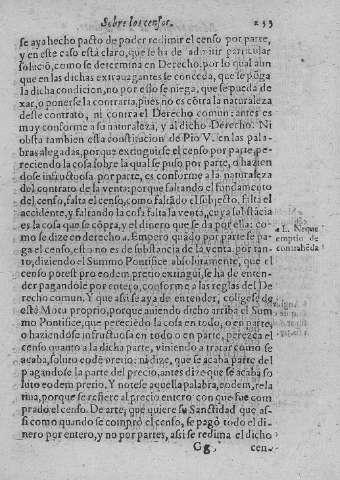 Sobre los censos. 233
se aya hecho pacto de poder redimir el censo por parte,
y en este caso está claro, que se ha de admitir particular
solució, como se determina en Derecho. por lo qual aun
que en las dichas extrauagantes se conceda, que se põga
la dicha condicion, no por esso se niega, que se pueda de
xar, o ponerse la contraria, pues no es cõtra la naturaleza
deste contrato, ni contra el Derecho comun: antes es
muy conforme a su naturaleza, y al dicho Derecho. Ni
obsta tambien esta constitucion de Pio V. en las pala-
bras alegadas, porque extinguirse el censo por parte, pe-
reciendo la cosa sobre la qual se puso por parte, o hazien
dose infructuosa por parte, es conforme a la naturaleza
del contrato de la venta: porque faltando el fundamento
del censo, falta el censo, como faltãdo el subjecto, falta el
accidente, y faltando la cosa falta la venta, cuya sustãcia
es la cosa que se cõpra, y el dinero que se da por ella: co-
mo se dize en derecho a. Empero quãdo por parte se pa-
ga el censo, esta no es de substancia de la venta. por tan-
to, diziendo el Summo Pontifice absolutamente, que el
censo põtest pro eodem precio extingui, se ha de enten-
der pagandole por entero, conforme a las reglas del De
recho comun. Y que assi se aya de entender, coligese de
este Motu proprio, porque auiendo dicho arriba el Sum
mo Pontifice, que pereciédo la cosa en todo, o en parte,
o haziendose infructuosa en todo o en parte, perezca el
censo quanto a la dicha parte, viniendo a tratar como se
acaba, soluto eodẽ precio: ni dize, que se acaba parte del
pagandose la parte del precio, antes dize que se acaba so
luto eodem precio. Y notese aquella palabra, eodem, rela
tiua, porque se refiere al precio entero con que fue com
prado el censo. De arte, que quiere su Sanctidad que as-
si como quando se compró el censo, se pagò todo el di-
nero por entero, y no por partes, assi se redima el dicho
Gg cen-
a L. Neque
emptio de
contrahẽda